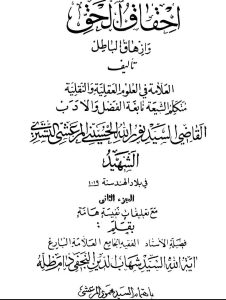 احقاق الحق
وازهاق الباطل
تأليف
العلامة في العلوم العقلية والنقلية
متكلم الشيعة نابغة الفضل والادب
القاضي السيد نور الله الحسيني المرعشي التستري
الشهيد
في بلاد الهند سنة ١٠١٩
الجزء الثاني
مع تعليقات نفيسة هامة
بقلم :
فضيلة الأستاذ الفقيه الجامع العلامة البارع
آية الله السيد شهاب الدين النجفي دام ظله
باهتمام السيد محمود المرعشي